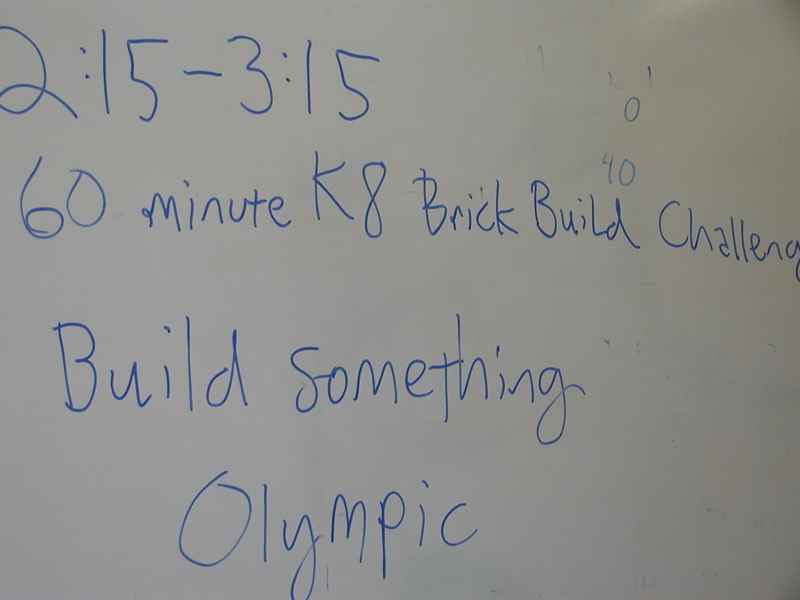 2:15-3:15
0
40
60 minute K8 Brick Build Challeng
Build something
Olympic